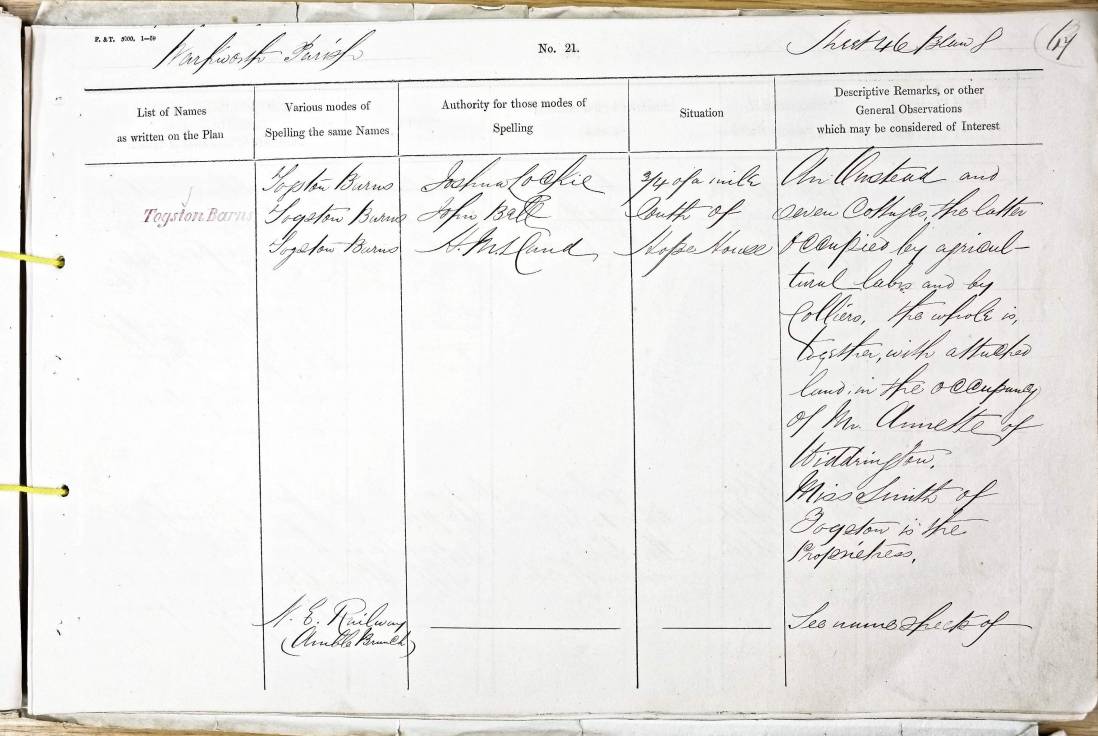 F. & T. 5000. 1—59
Warkworth Parish
No. 21.
Sheet 46 Plan 8
67
List of Names
as written on the Plan
Various modes of
Spelling the same Names
Authority for those modes of
Spelling
Situation
Descriptive Remarks, or other
General Observations
which may be considered of Interest
Togston Barns
Togston Barns
Togston Barns
Togston Barns
Joshua Lockie
John Ball
3/4 of a mile
South of
Hope House
An Onstead and
seven Cottages, the latter
occupied by agricul-
tural labrs and by
Colliers. the whole is,
together, with attached
land, in the occupancy
of Mr. Annette of
Widdrington.
Miss Smith of
Togston is the
Proprietress.
N. E. Railway
(Amble Branch)
See name sheets of